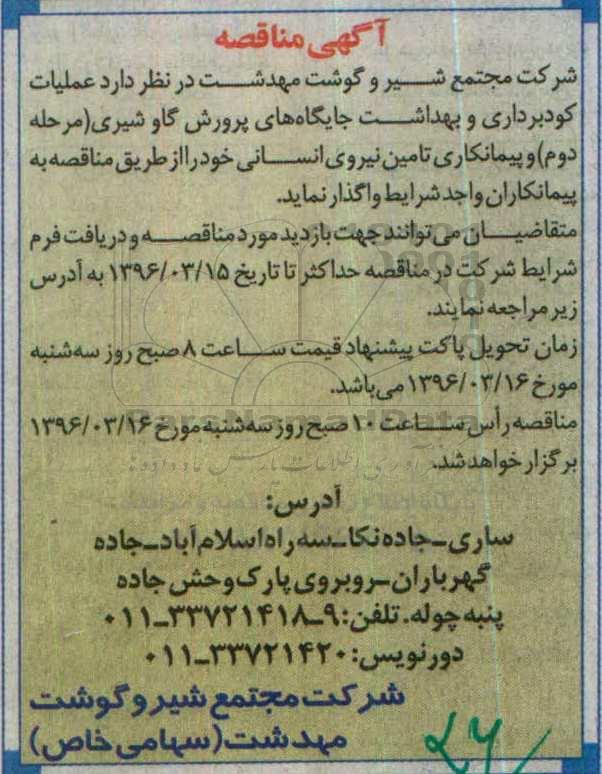 آگهی مناقصه
شرکت مجتمع شیر و گوشت مهدشت در نظر دارد عملیات
کودبرداری و بهداشت جایگاه‌های پرورش گاو شیری(مرحله
دوم)و پیمانکاری تامین نیروی انسانی خود را از طریق مناقصه به
پیمانکاران واجد شرایط واگذار نماید.
متقاضیان می‌توانند جهت بازدید مورد مناقصه و دریافت فرم
شرایط شرکت در مناقصه حداکثر تا تاریخ ۱۳۹۶/۰۳/۱۵ به آدرس
زیر مراجعه نمایند.
زمان تحویل پاکت پیشنهاد قیمت ساعت ۸ صبح روز سه‌شنبه
مورخ ۱۳۹۶/۰۳/۱۶ می‌باشد.
مناقصه رأس ساعت ۱۰ صبح روز سه‌شنبه مورخ ۱۳۹۶/۰۳/۱۶
برگزار خواهد شد.
ParsNamadData
آدرس:
ساری-جاده نکا-سه راه اسلام آباد-جاده
گهرباران-روبروی پارک وحش جاده
پنبه چوله. تلفن: ۹-۳۳۷۲۱۴۱۸-۰۱۱
دورنویس: ۳۳۷۲۱۴۲۰-۰۱۱
شرکت مجتمع شیر و گوشت
مهدشت(سهامی خاص)